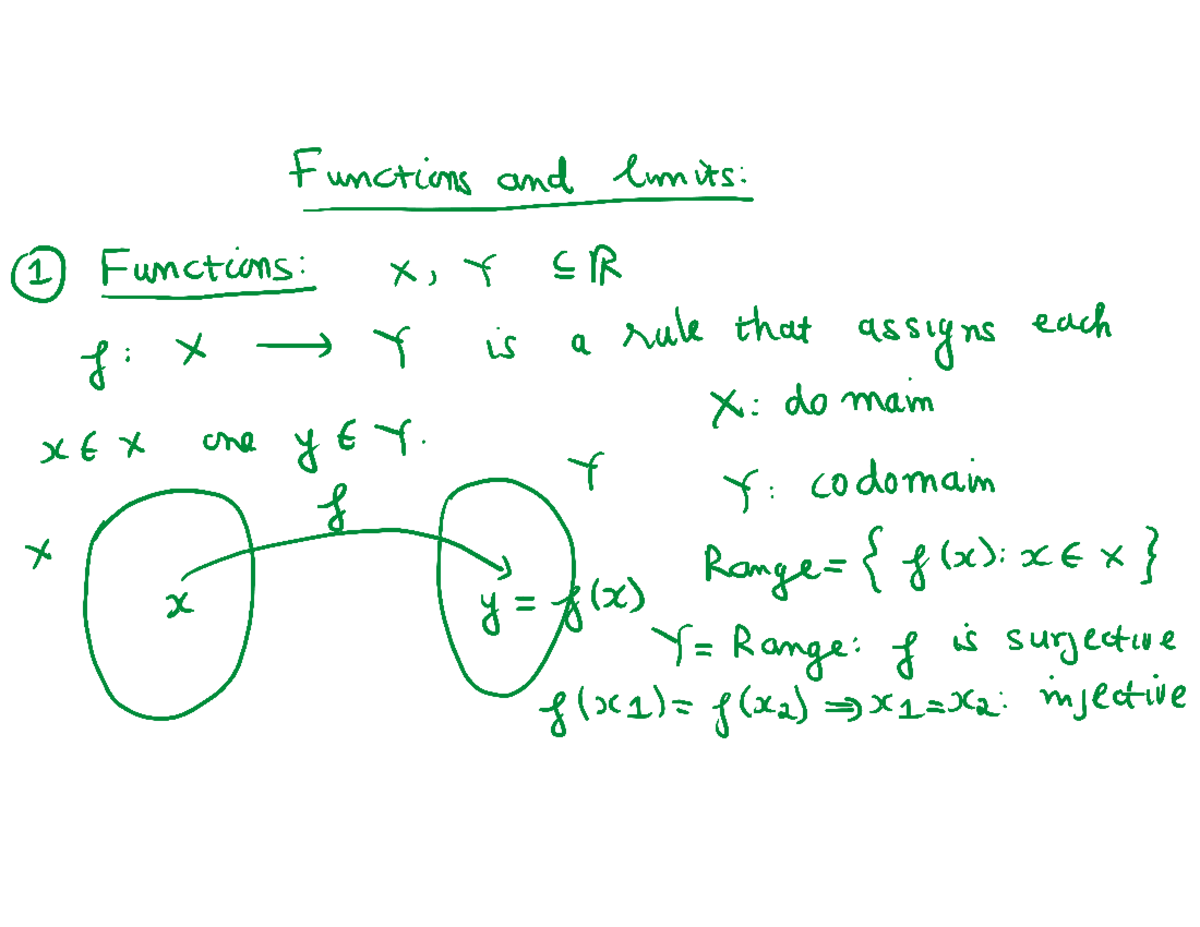 Functions and limits:
① Functions: X, Y ⊆ ℝ
f: X ⟶ Y is a rule that assigns each
x ∈ X one y ∈ Y.
X: domain
Y: codomain
Range = { f(x): x ∈ X }
Y = Range: f is surjective
f(x1) = f(x2) ⇒ x1 = x2: injective
X
f
Y
x
y = f(x)